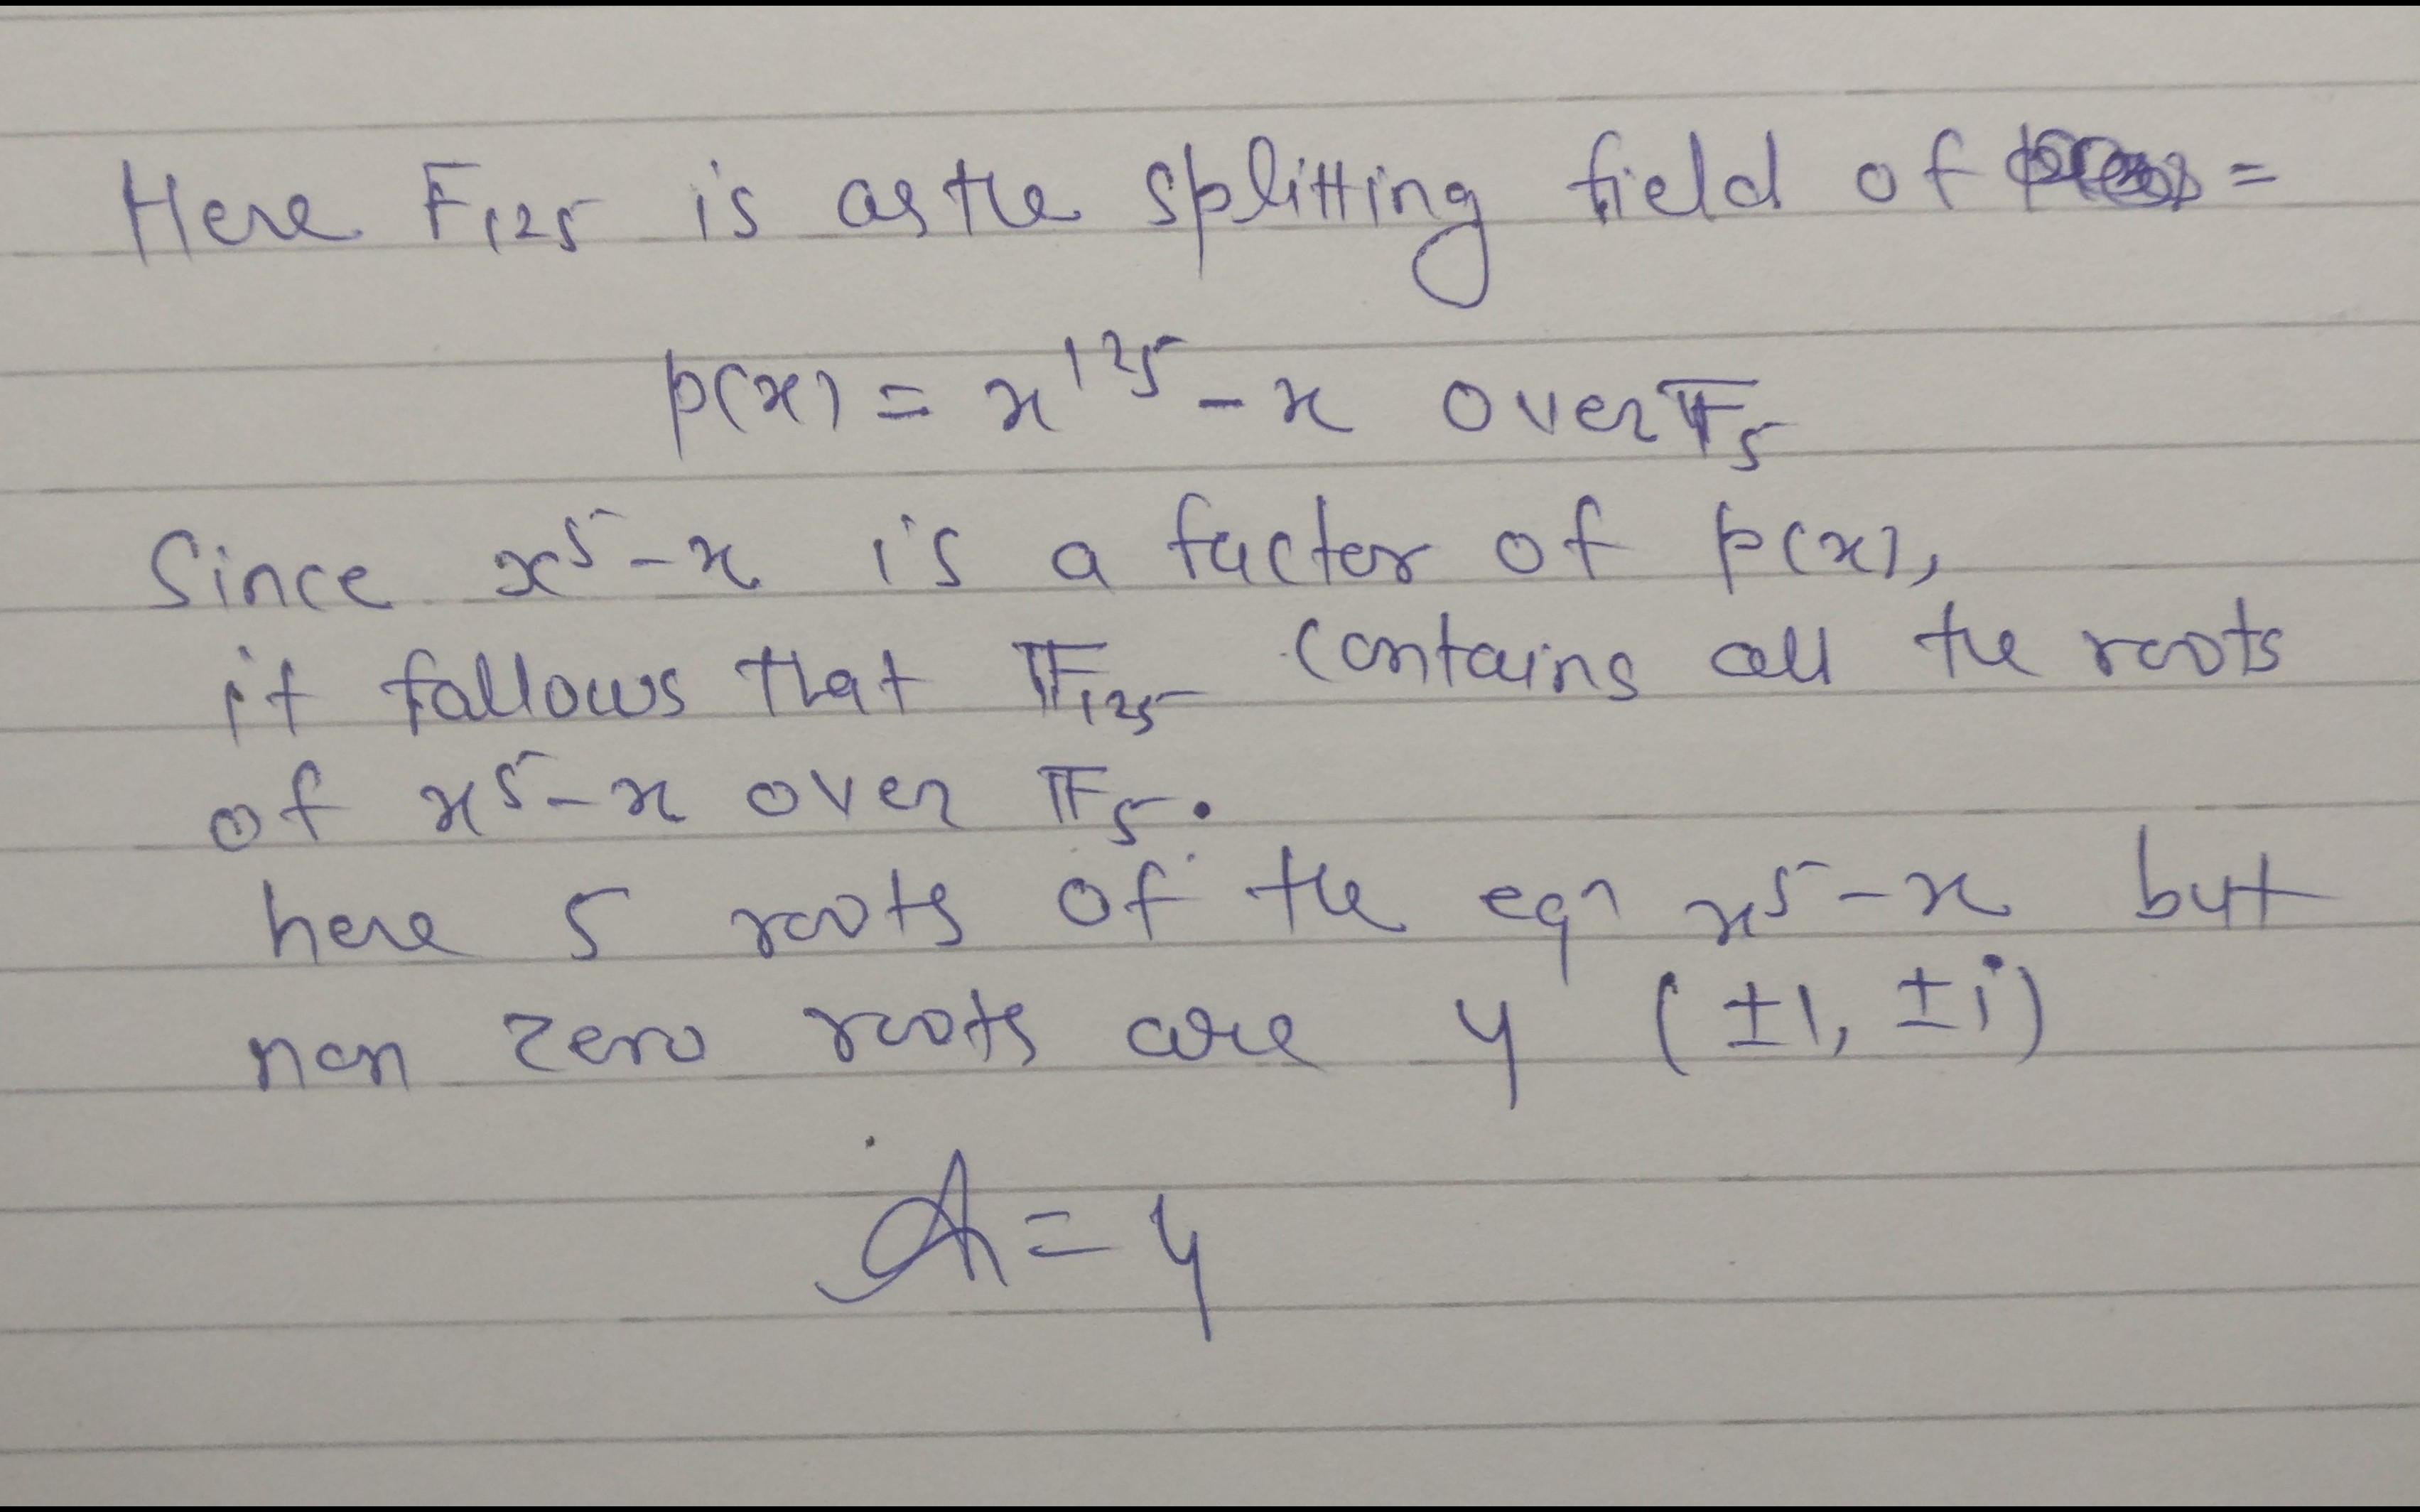 Here F₁₂₅ is as the splitting field of =
p(x) = x¹²⁵ - x over 𝔽₅
Since x⁵ - x is a factor of p(x),
it follows that 𝔽₁₂₅ contains all the roots
of x⁵ - x over 𝔽₅.
here 5 roots of the eqn x⁵ - x but
non zero roots are 4 (±1, ±i)
A = 4